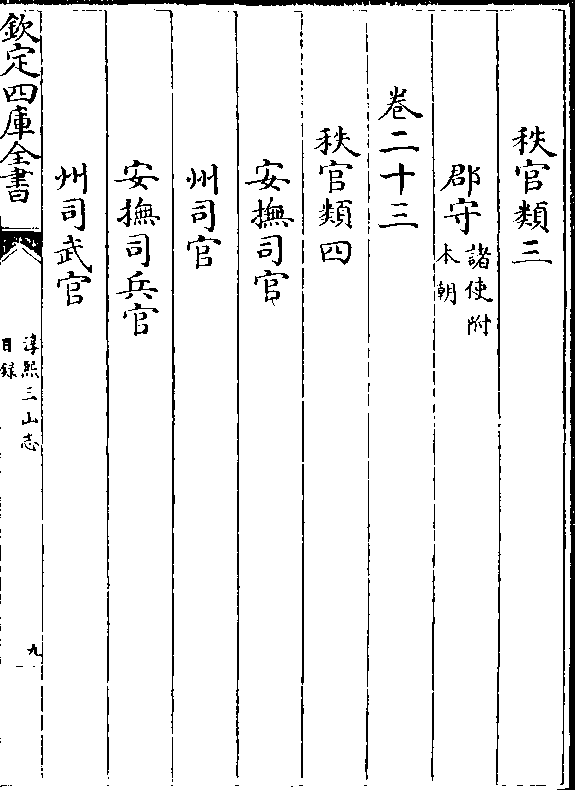 秩官類三
郡守諸使附
本朝
卷二十三
秩官類四
安撫司官
州司官
安撫司兵官
州司武官
欽定四庫全書
淳熙三山志
目録
九